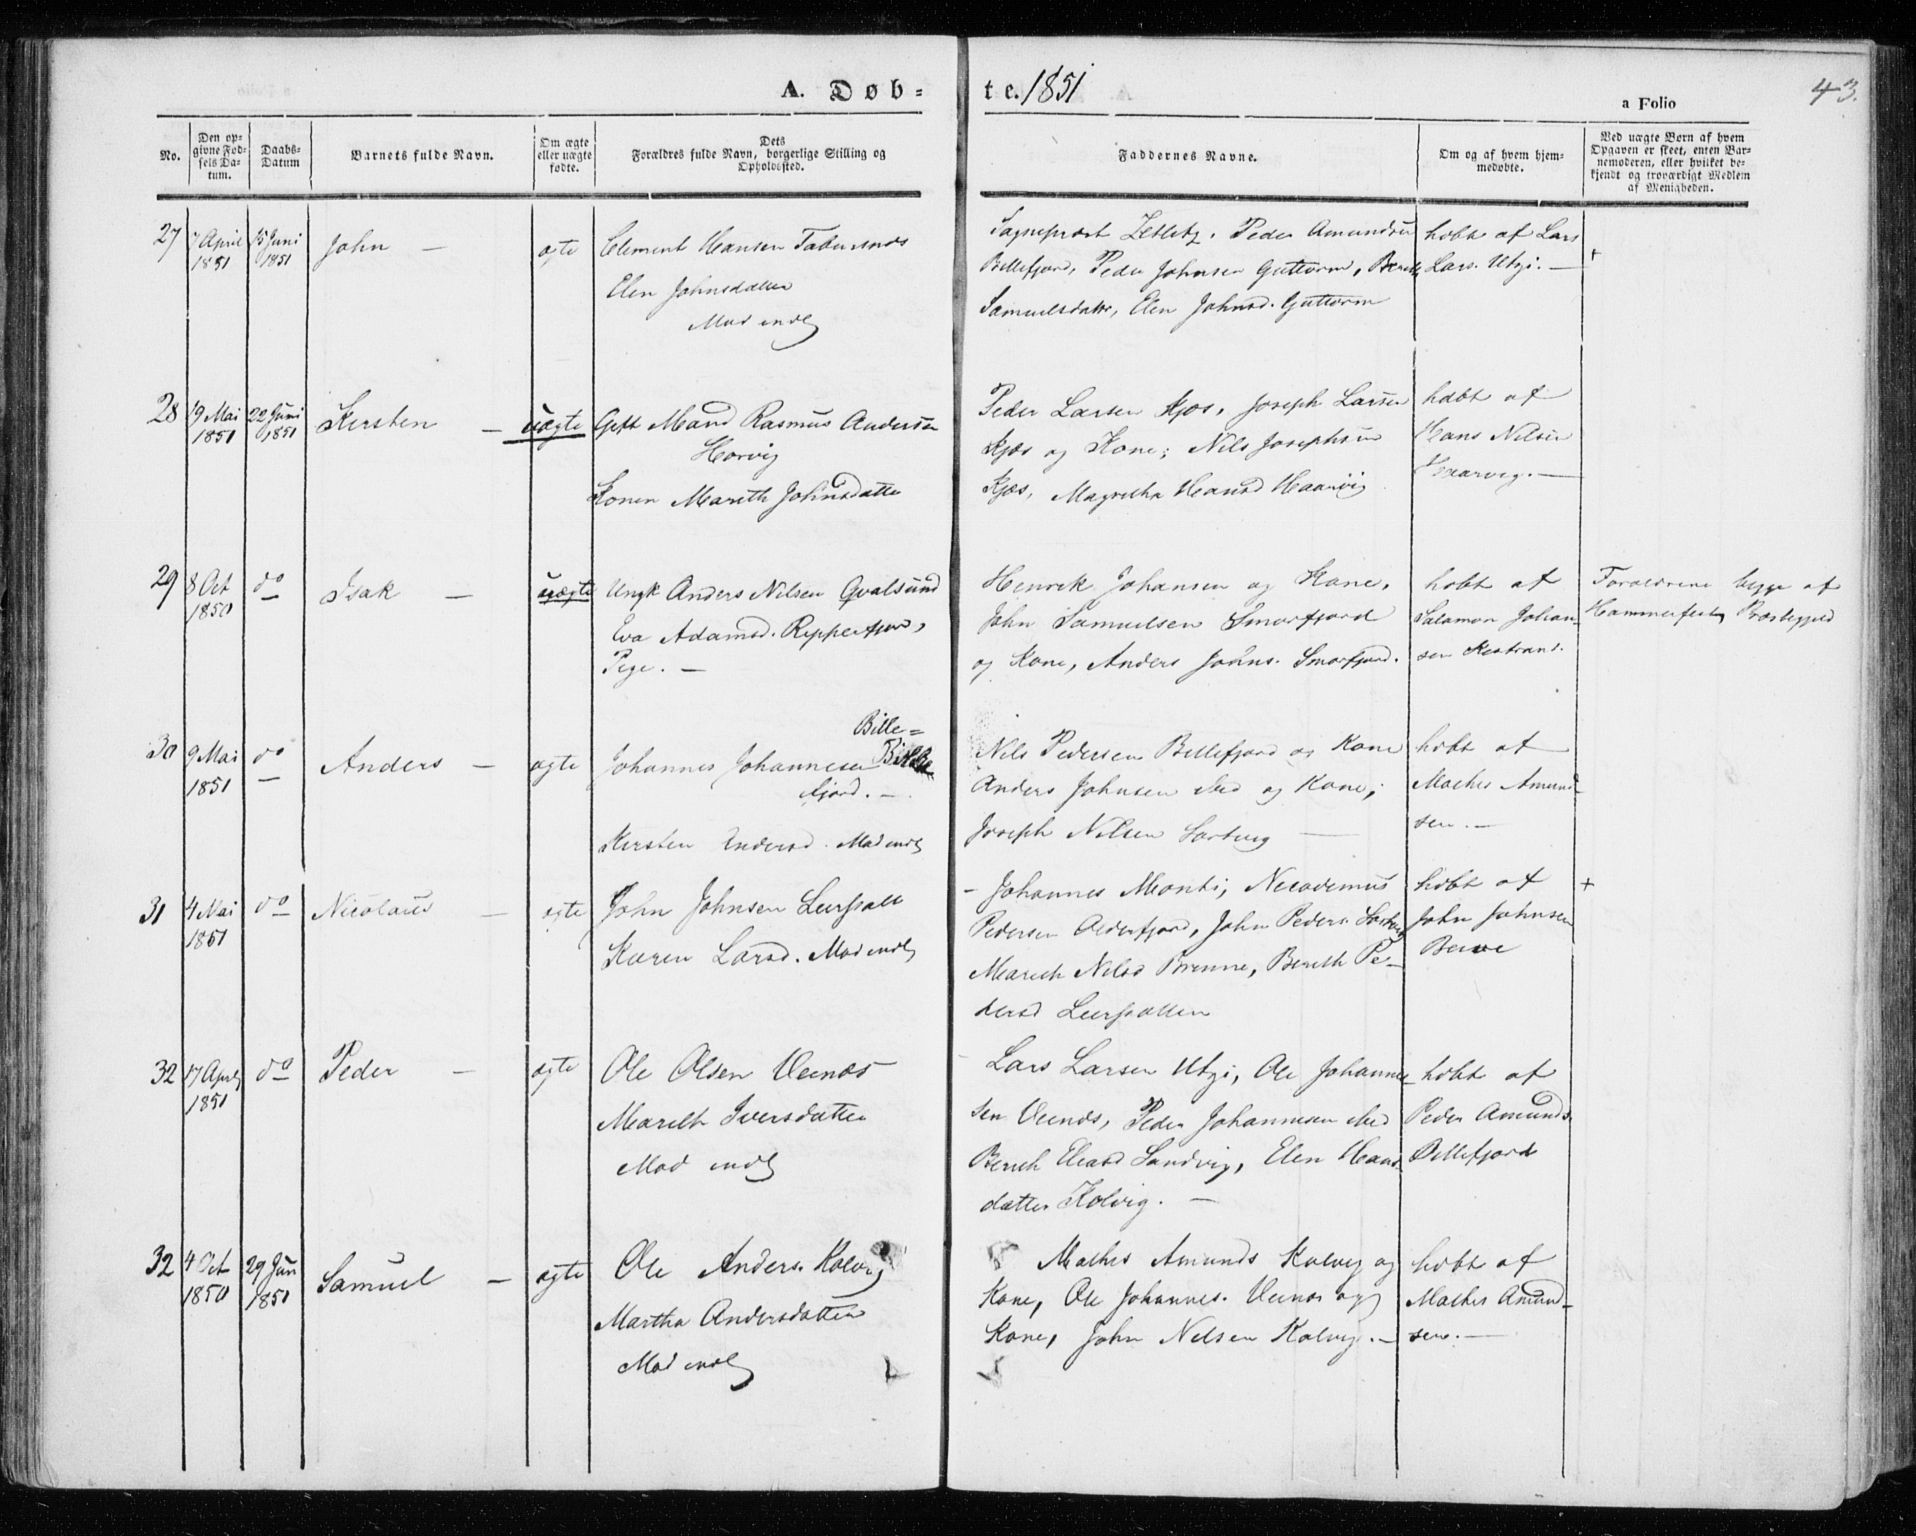 A. Døb=
te. 1851
a Folio
43.
No.
Den op=
givne Fød=
sels Da=
tum.
Daabs=
Datum
Barnets fulde Navn.
Om ægte
eller uægte
fødte.
Dets
Forældres fulde Navn, borgerlige Stilling og
Opholdssted.
Faddernes Navne.
Om og af hvem hjem=
medøbte.
Ved uægte Børn af hvem
Opgaven er skeet, enten Bar=
nemoderen, eller hvilket be=
kjendt og troværdigt Medlem
af Menigheden.
27
7 April
1851
15 Juni
1851
John —
ægte
Clement Hansen
Elen Johnsdatter
Sogneprest Zetlitz, Peder Amundsen
Billefjord, Peder Johnsen Guttorm, Bereth
Samuelsdatter, Elen Johnsd. Guttorm
hdbt af Lars
Lars. Utzi. —
+
28
19 Mai
1851
22 Juni
1851
Kersten —
uægte
Gift Mand Rasmus Andersen
Horvig
Konen Marith Johnsdatter
Peder Larsen Kjæs, Joseph Larsen
Kjæs og Kone; Nils Josephsen
Kjæs, Magretha Hansd Haarvig
hdbt af
Hans Nilsen
Haarvig. —
29
8 Oct
1850
do
Isak —
uægte
Ungk Anders Nilsen Qvalsund
Eva Adamsd. Repperfjord,
Pige. —
Henrik Johansen og Kone,
John Samuelsen Smorfjord
og Kone, Anders Johns. Smorfjord.
hdbt af
Salamon Johan-
sen
Forældrene begge af
Hammerfest Præstegjeld
30
9 Mai
1851
do
Anders —
ægte
Bille=
Johannes Johannesen
fjord. —
Kersten Andersd.
Nils Pedersen Billefjord og Kone
Anders Johnsen og Kone;
Joseph Nilsen —
hdbt af
Mathis Amund-
sen. —
31
4 Mai
1851
do
Nicolaus —
ægte
John Johnsen Leirpoll
Karen Larsd.
- Johannes Monti, Nicodemus
Pedersen Olderfjord, John Peders
Marith Nilsd Brenne, Bereth Pe-
dersd Leirpollen
hdbt af
John Johnsen
+
32
17 April
1851
do
Peder —
ægte
Ole Olsen Veinæs
Marith Iversdatter
Lars Larsen Utzi, Ole Johanne-
sen Veinæs, Peder Johannesen
Bereth Eliasd Sandvig, Elen Hans
datter Kolvig. —
hdbt af
Peder Amunds.
Billefjord
32
4 Oct
1850
29 Jun
1851
Samuel —
ægte
Ole Anders. Kolvig
Martha Andersdatter
Mathis Amunds Kolvig og
Kone, Ole Johannes. Veinæs og
Kone, John Nilsen Kolvig. —
hdbt af
Mathis Amund-
sen. —